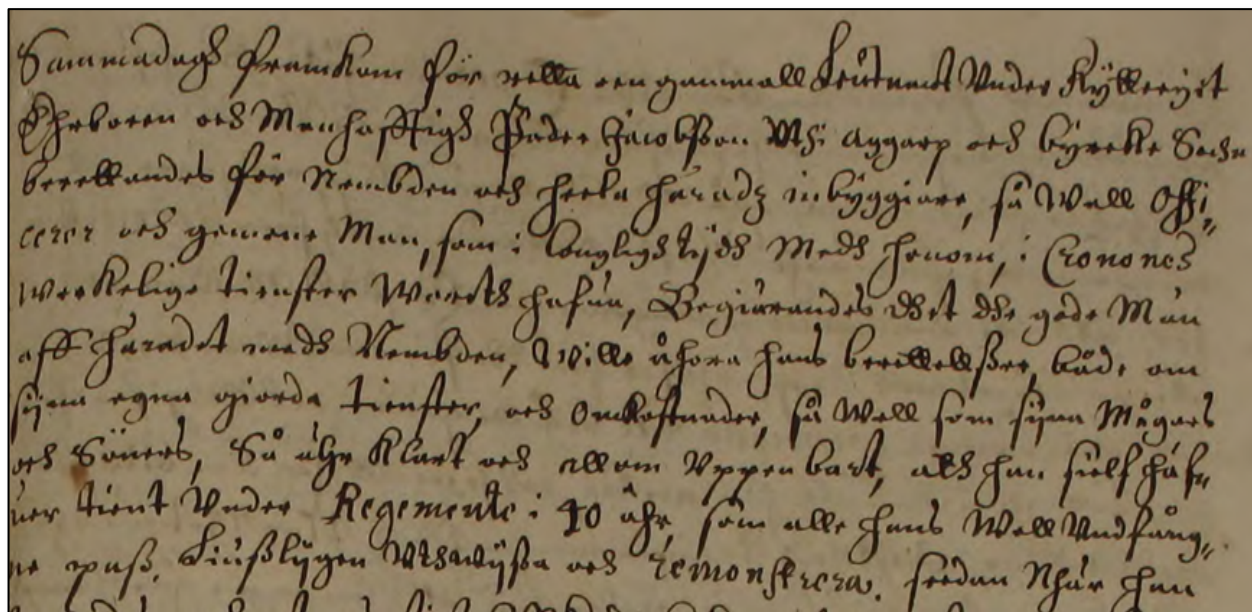 Sammadagh framkom för retta een gammall Leütnant Vnder Rÿtterijet
Ehrboren och Manhafftigh Peder Jacobsson Uthi Aggarp och bÿrekke Sochn
berettandes för Nembden och heela häradz inbÿggiare, så Wall Offi„
cerer och gemene Man, som i långligh tÿdh Medh honom, i Cronones
Werkelige tienster Warith hafua, Begiärandes dhet dhe gode Män
aff häradet medh Nembden, Wille åhöra hans berettellßer, både om
sÿna egna giorda tienster, och omkostnader, så Well som sÿna Mågars
och Söners, Så ähr Klart och allom Uppenbart, att han sielf häf„
uer tient Vnder Regemente i 40 åhr, som alle hans Well Vndfång„
ne paß, Liußlÿgen Uthwÿßa och remonstrera, sedan Nhär han